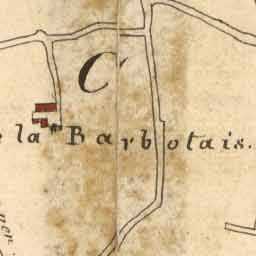 C
e la Barbotais.